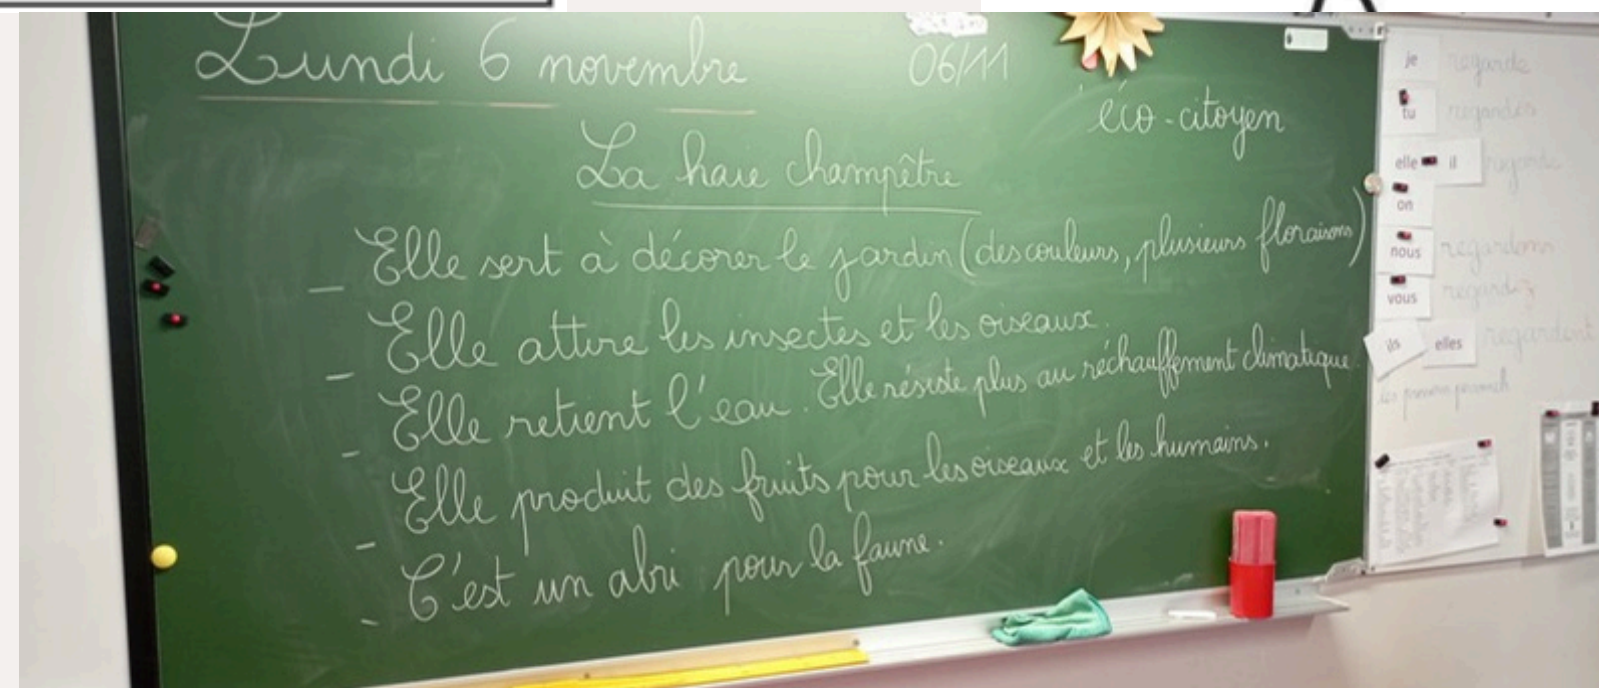 Lundi 6 novembre 06/11
éco-citoyen
La haie champêtre
_ Elle sert à décorer le jardin (des couleurs, plusieurs floraisons)
_ Elle attire les insectes et les oiseaux.
_ Elle retient l'eau. Elle résiste plus au réchauffement climatique.
_ Elle produit des fruits pour les oiseaux et les humains.
_ C'est un abri pour la faune.
je regarde
tu regardes
elle il regarde
on
nous regardons
vous regardez
ils elles regardent